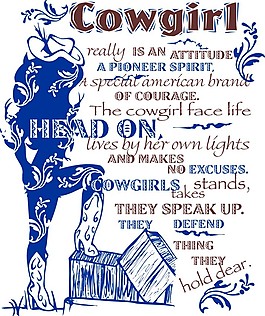 Cowgirl
really IS AN ATTITUDE
A PIONEER SPIRIT,
A special american brand
OF COURAGE.
The cowgirl face life
HEAD ON,
lives by her own lights
AND MAKES
NO EXCUSES.
COWGIRLS takes stands,
THEY SPEAK UP.
THEY DEFEND
THING
THEY
hold dear.